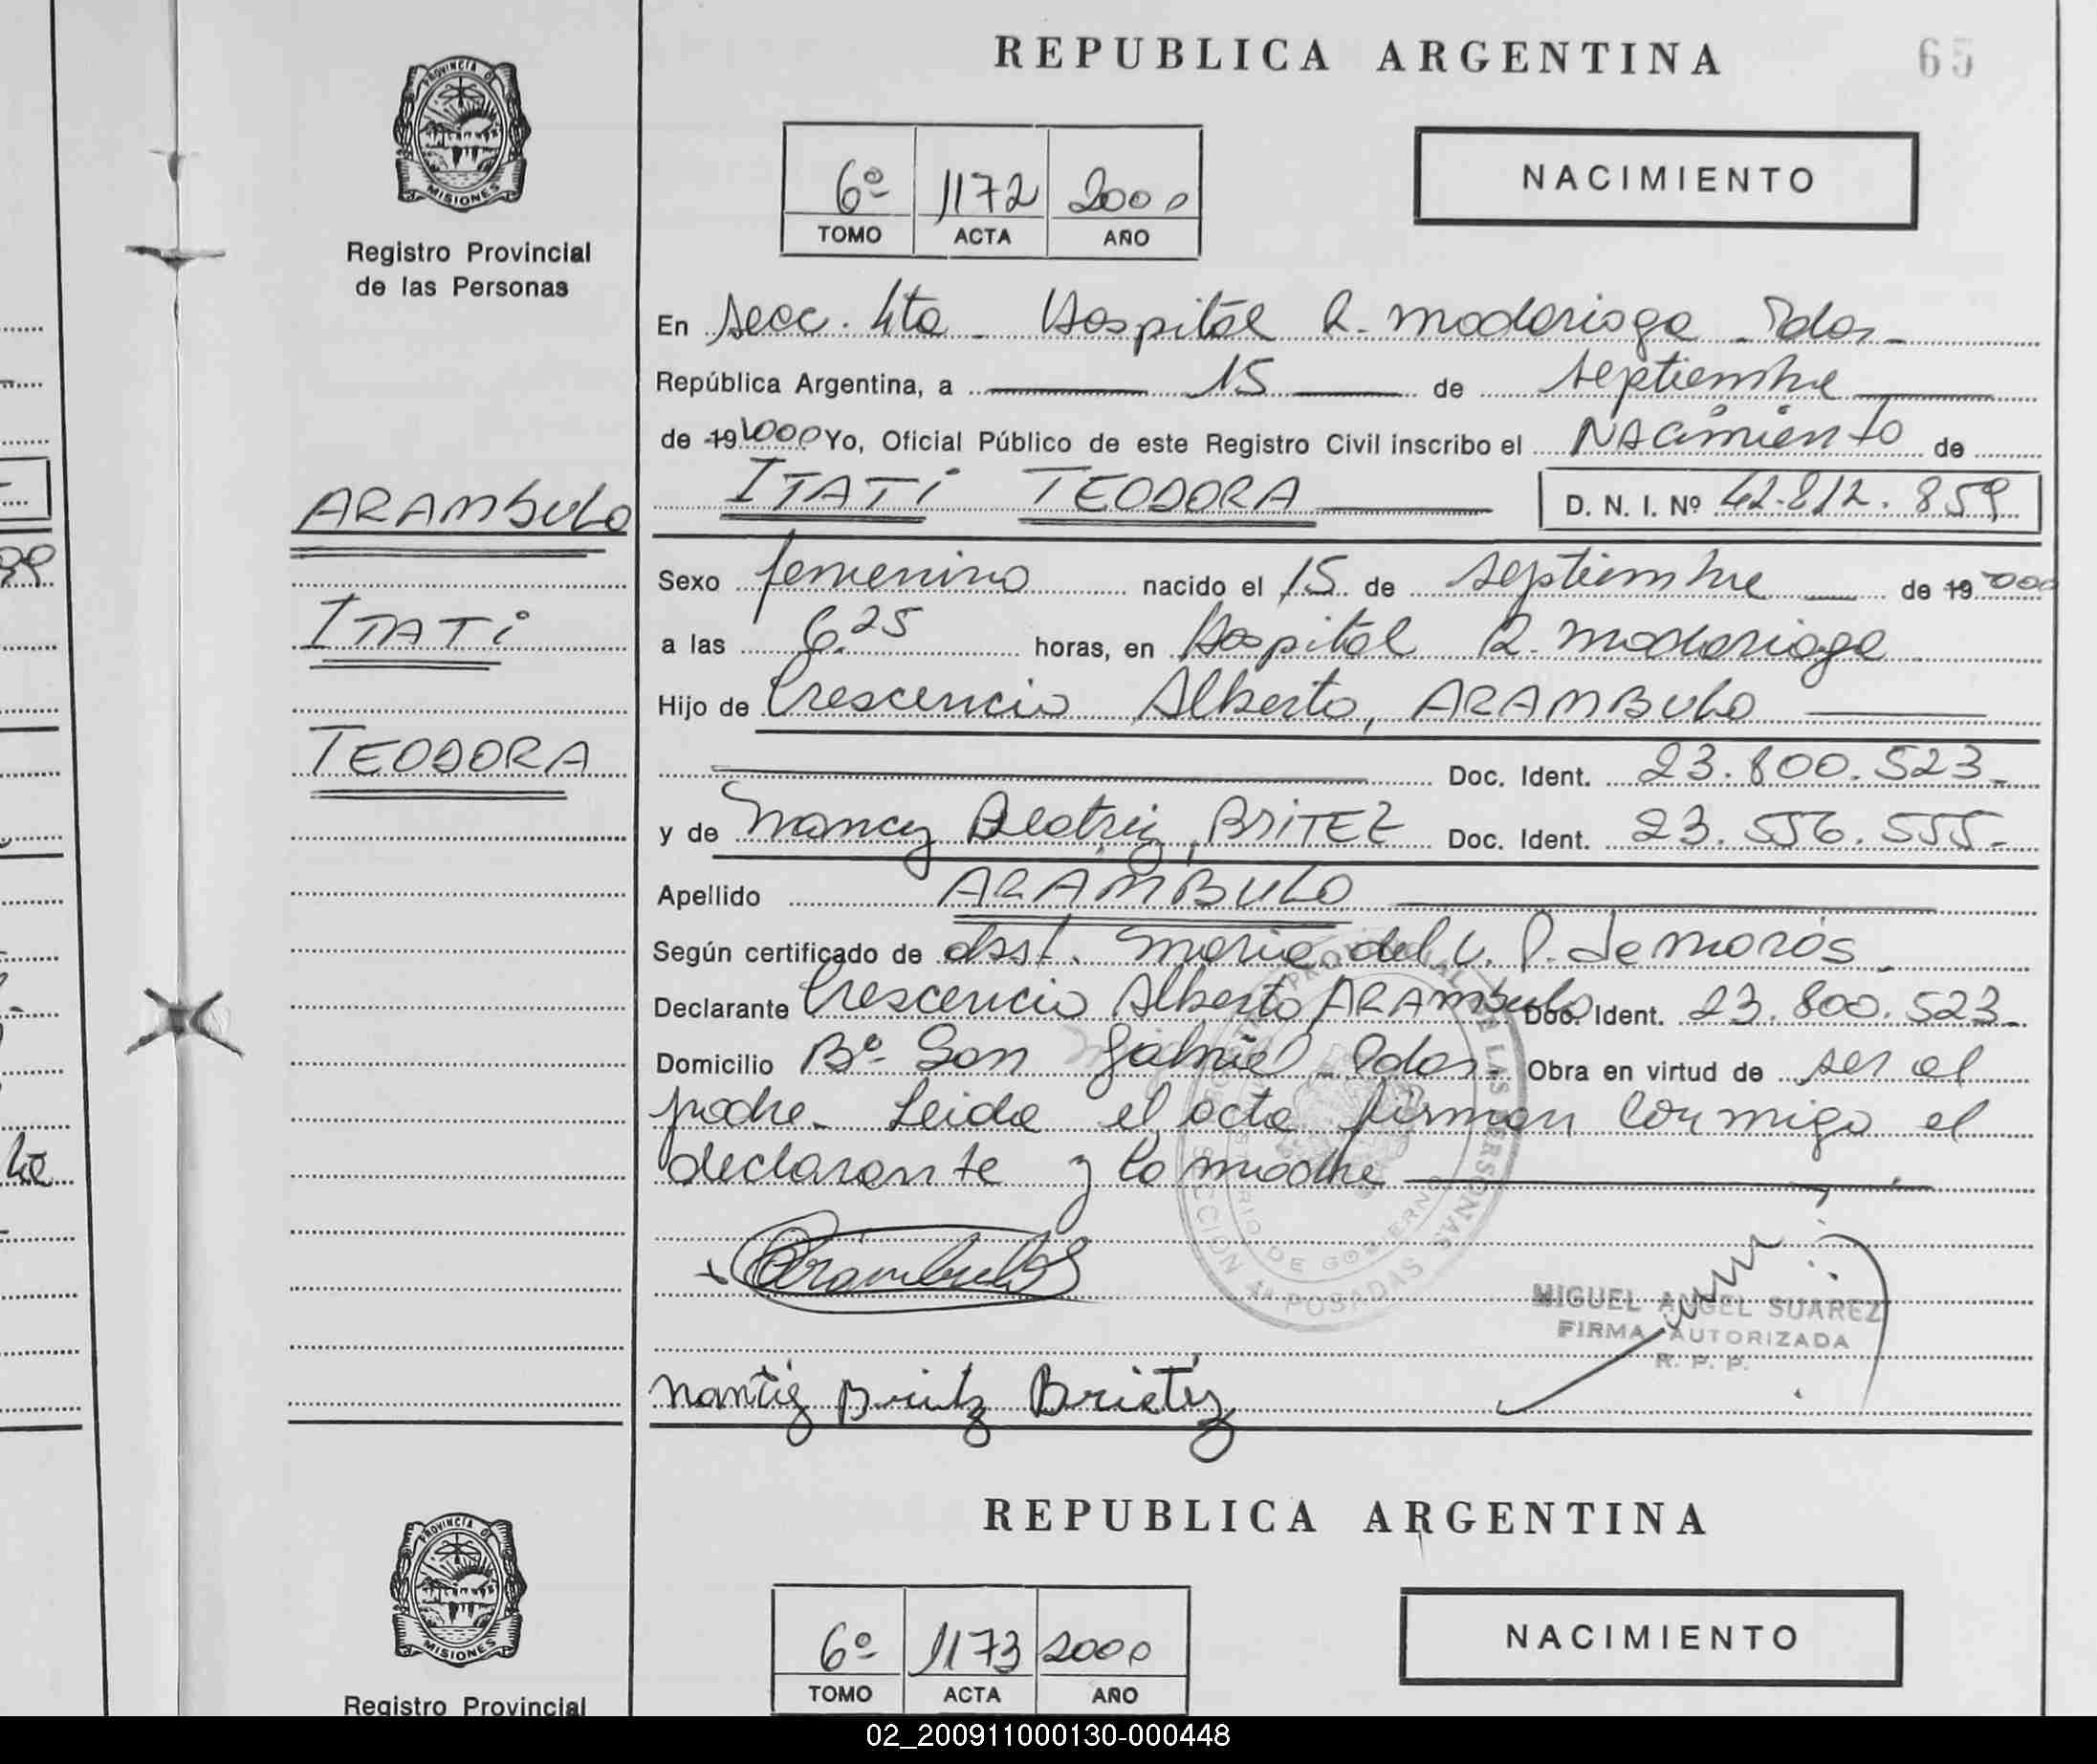 REPUBLICA ARGENTINA
65
PROVINCIA DE
MISIONES
Registro Provincial
de las Personas
6º 1172 2000
TOMO ACTA AÑO
NACIMIENTO
En Secc. 4ta - Hospital R. Madariaga - Pdas -
República Argentina, a 15 de septiembre
de 19 2000 Yo, Oficial Público de este Registro Civil inscribo el NACimiento de
ITATi TEODORA D. N. I. Nº 42.812.859
ARAMBULO
ITATi
TEODORA
Sexo femenino nacido el 15 de septiembre de 19 2000
a las 6.25 horas, en Hospital R. Madariaga
Hijo de Crescencio Alberto, ARAMBULO
Doc. Ident. 23.800.523-
y de Nancy Beatriz, BRiTEZ Doc. Ident. 23.556.555-
Apellido ARAMBULO
Según certificado de obst. Maria del C. P. de Morós
Declarante Crescencio Alberto, ARAMBULO Doc. Ident. 23.800.523-
Domicilio Bº San Gabriel - Pdas - Obra en virtud de ser el
padre - Leida el acta firman conmigo el
declarante y la madre
Arambulo
MINISTERIO DE GOBIERNO
SECCION 4ª POSADAS
MIGUEL ANGEL SUAREZ
FIRMA AUTORIZADA
R. P. P.
REPUBLICA ARGENTINA
PROVINCIA DE
MISIONES
6º 1173 2000
TOMO ACTA AÑO
NACIMIENTO
Registro Provincial
02_200911000130-000448